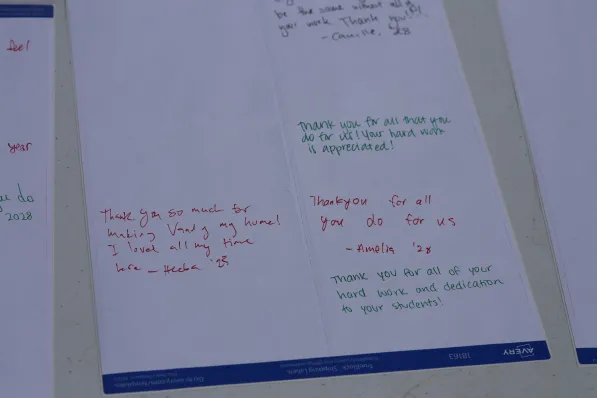 feel
year
do
2028
Thank you so much for
making Vandy my home!
I loved all my time
here - Heeba '25
be the same without all of
your work Thank you!!!
- Camille, '28
Thank you for all that you
do for us! Your hard work
is appreciated!
Thankyou for all
you do for us
- Amelia '28
Thank you for all of your
hard work and dedication
to your students!
AVERY
18163
TrueBlock® Shipping Labels
Go to avery.com/templates